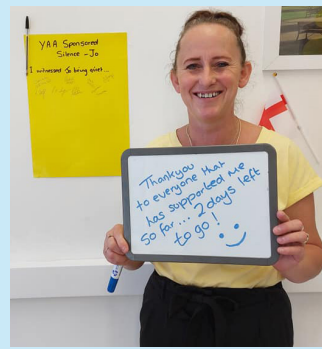 YAA Sponsored
Silence - Jo
I witnessed Jo being silent...
Thankyou
to everyone that
has supported me
so far... 2 days left
to go!